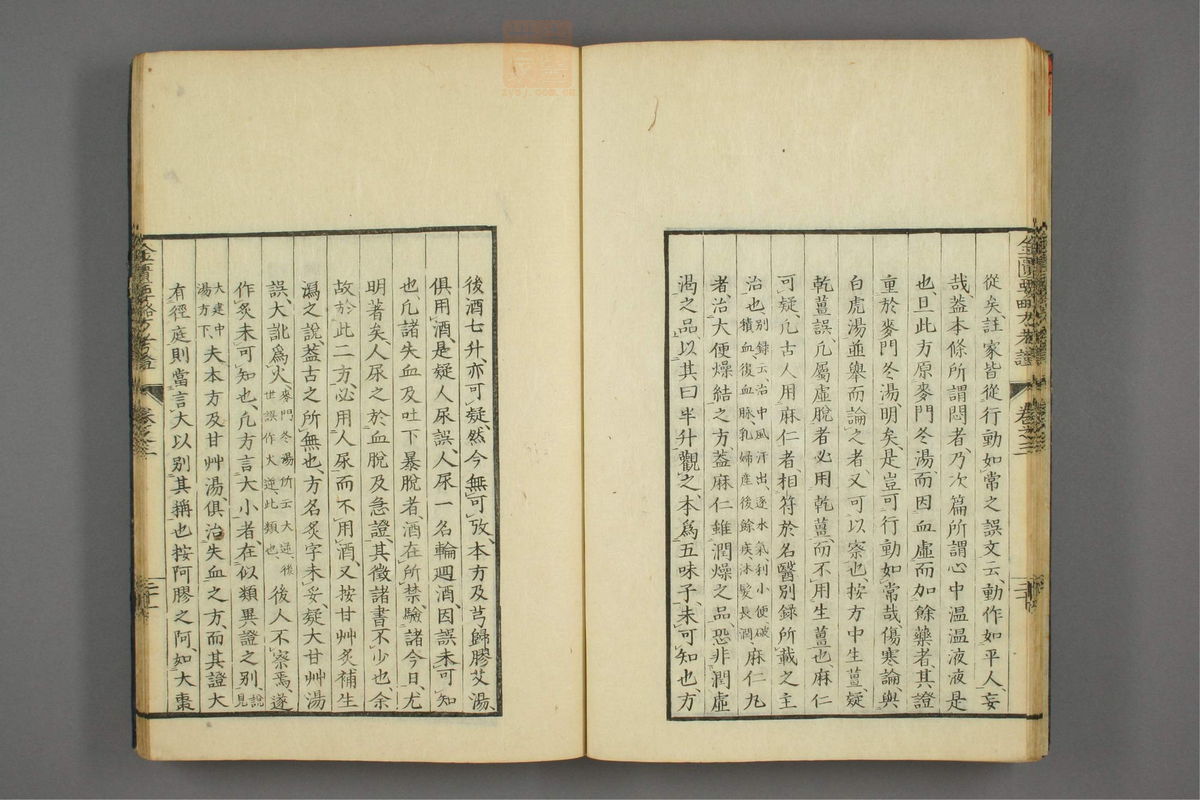 從矣、註家皆從行動如常之誤文云、動作如平人、妄
哉、蓋本條所謂悶者、乃次篇所謂心中温温液液是
也且此方原麥門冬湯、而因血虛而加餘藥者、其證
重於麥門冬湯明矣、是豈可行動如常哉傷寒論與
白虎湯並舉而論之者、又可以察也按方中生薑疑
乾薑誤、凡屬虛脫者必用乾薑而不用生薑也、麻仁
可疑、凡古人用麻仁者、相符於名醫別錄所載之主
治也、別錄云、治中風汗出逐水氣利小便破積血復血脉、乳婦產後餘疾、沐髮長潤麻仁九
者、治大便燥結之方、蓋麻仁雖潤燥之品、恐非潤虛
渴之品以其曰半升觀之、本爲五味子、未可知也、方
後酒七升、亦可疑、然今無可攷、本方及芎歸膠艾湯、
俱用酒、是疑人尿誤、人尿一名輪廻酒、因誤未可知
也凡諸失血及吐下暴脫者、酒在所禁、驗諸今日、尤
明著矣、人尿之於血脫及急證其徵諸書不少也余
故於此二方、必用人尿而不用酒、又按甘艸炙補生
瀉之說、蓋古之所無也、方名炙字未妥、疑大甘艸湯
誤、大訛爲火、麥門冬湯所云大逆、後世誤作火逆、此類也、後人不察焉、遂
作炙未可知也、凡方言大小者、在似類異證之別、說見
大建中湯方下、夫本方及甘艸湯、俱治失血之方、而其證大
有徑庭則當言大以別其稱也按阿膠之阿、如大棗